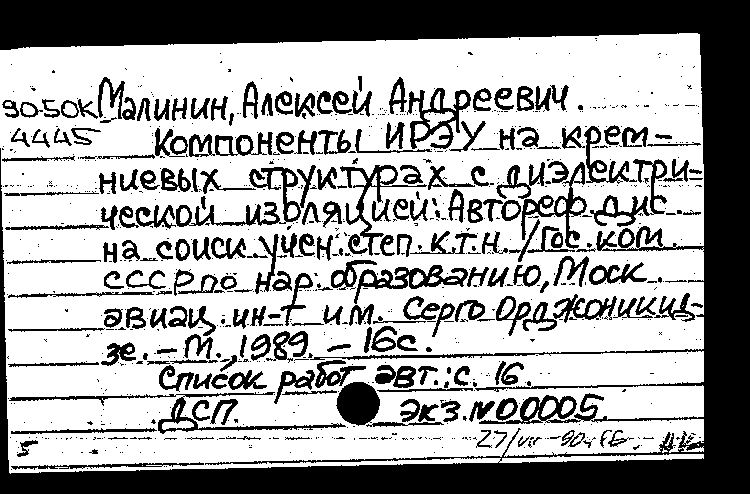 90-50К Малинин, Алексей Андреевич.
4445 Компоненты ИРЭУ на крем-
ниевых структурах с диэлектри-
ческой изоляцией: Автореф. дис.
на соиск. учен. степ. к.т.н. / Гос. ком.
СССР по нар. образованию, Моск.
авиац. ин-т им. Серго Орджоникид-
зе. – М., 1989. – 16с.
Список работ авт.: с. 16.
ДСП. Экз. N00005.
5 27/VII-90г